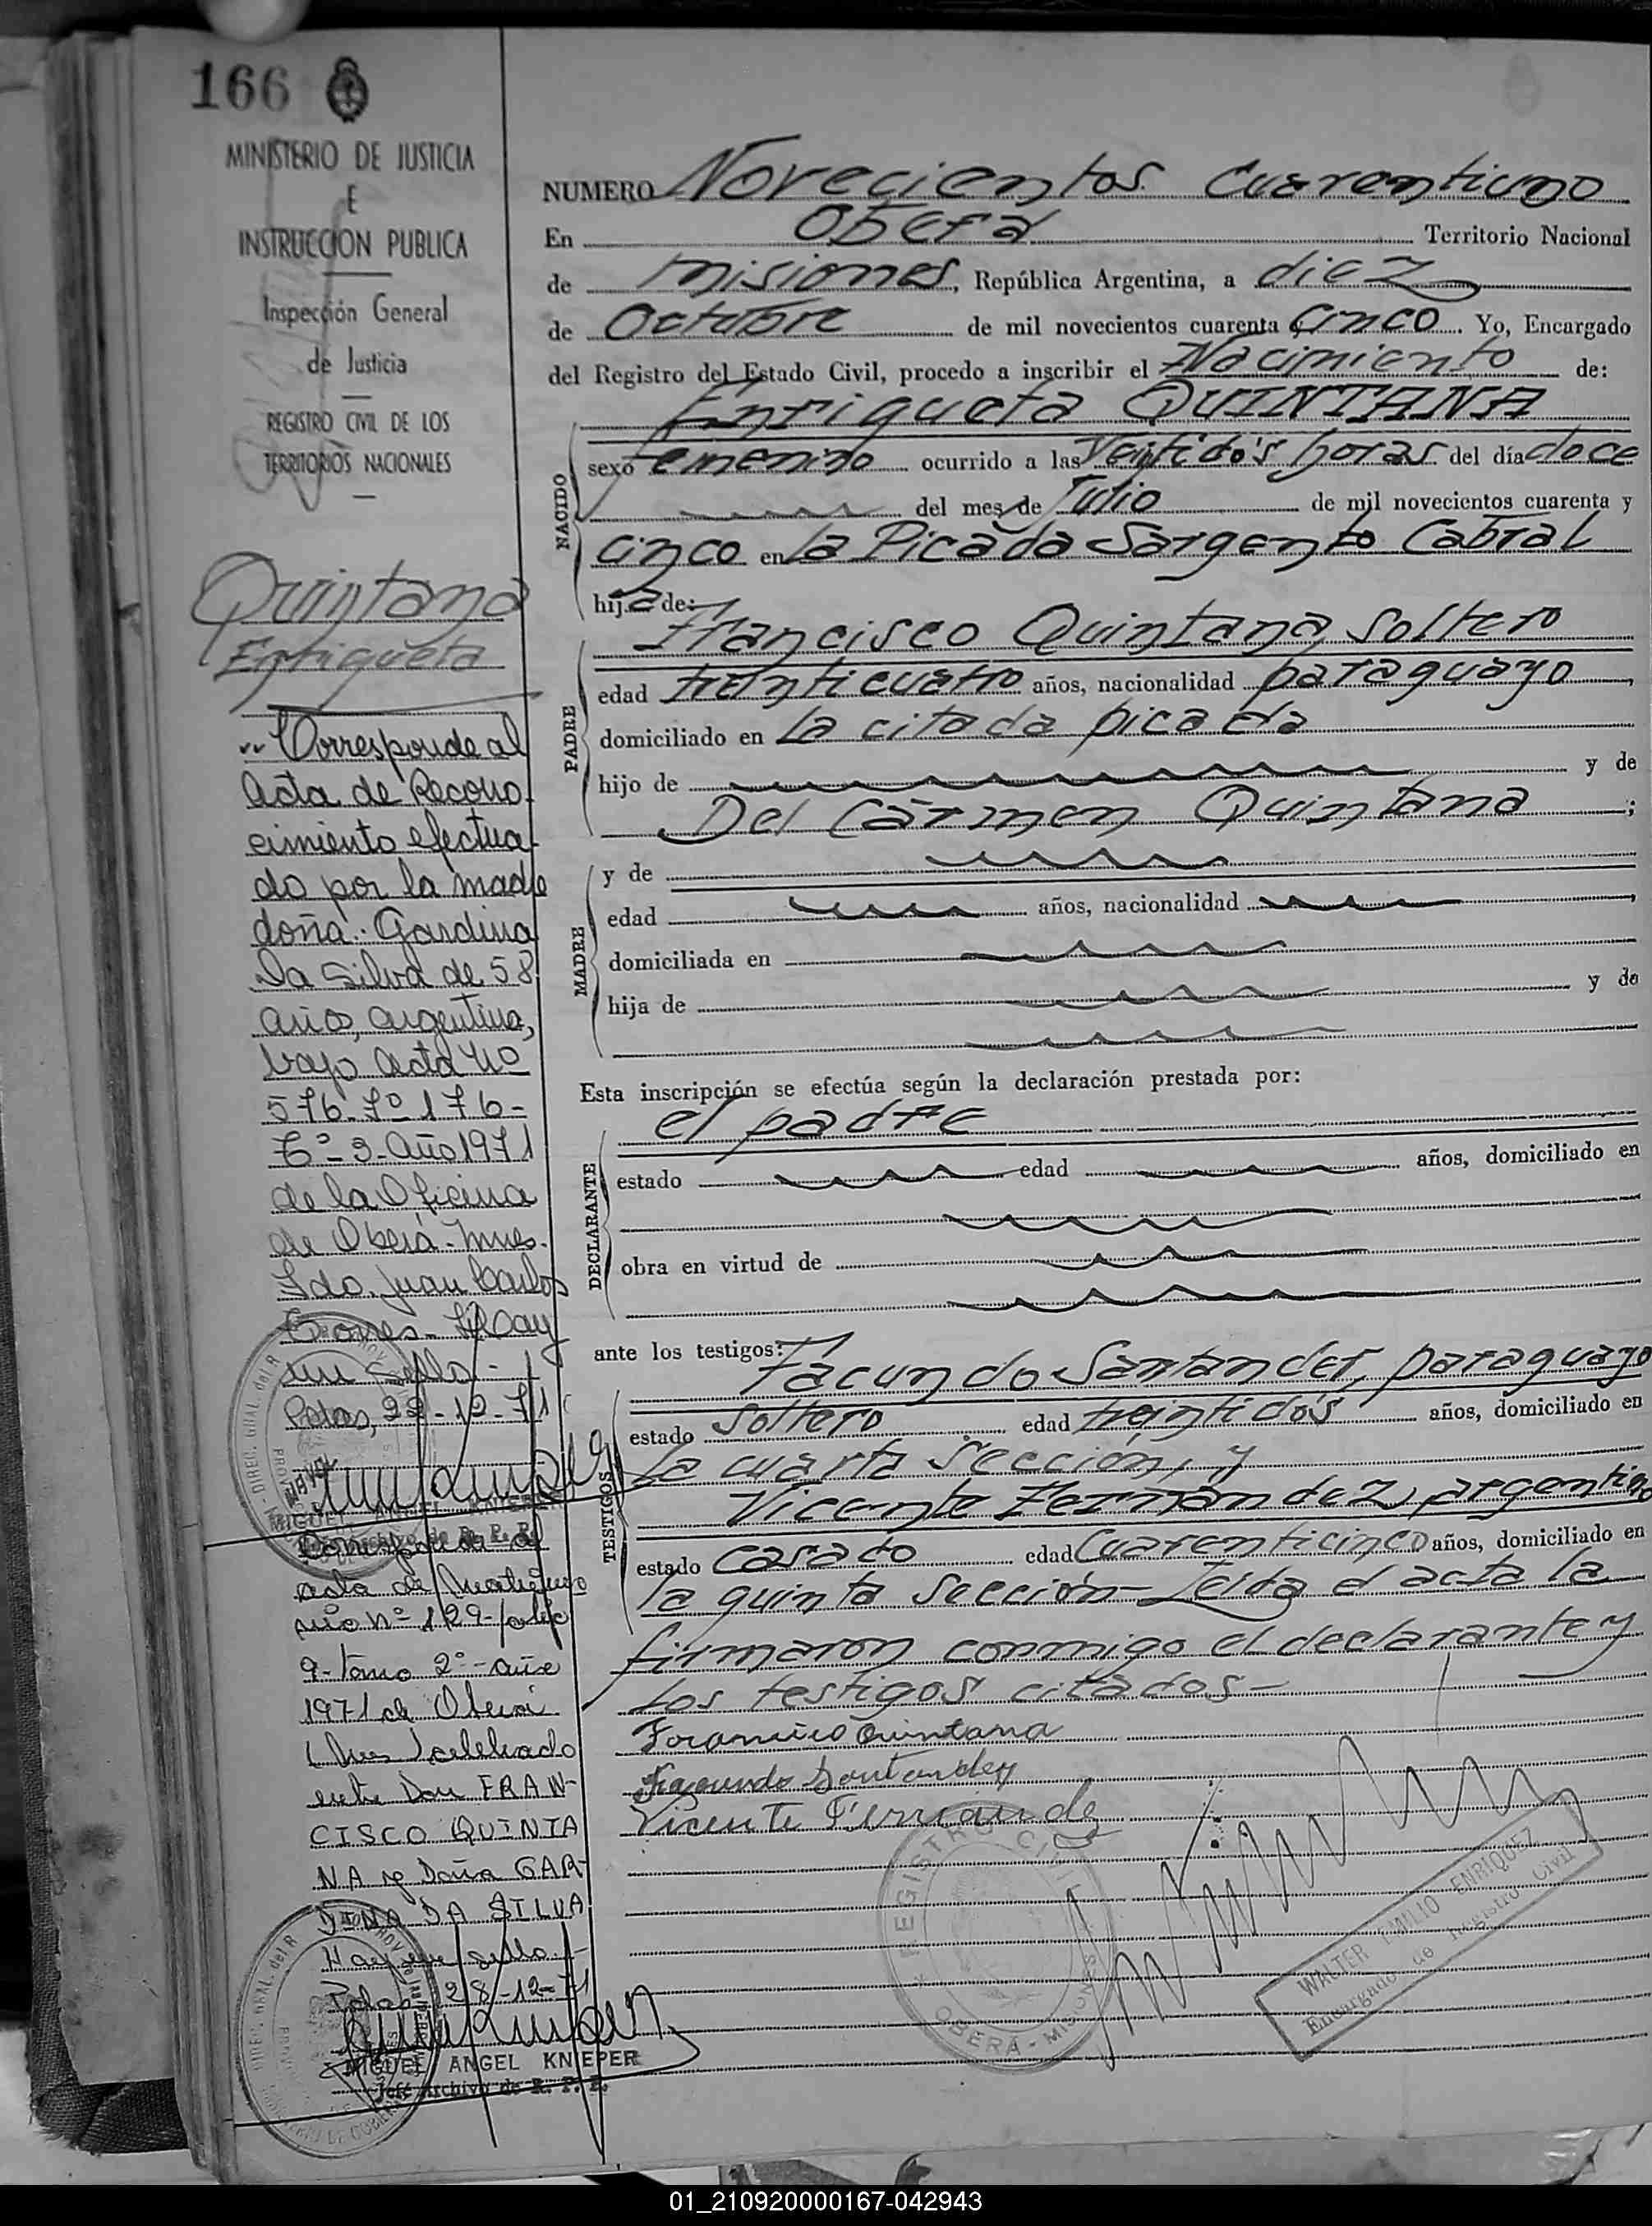 166
MINISTERIO DE JUSTICIA
E
INSTRUCCION PUBLICA
Inspección General
de Justicia
REGISTRO CIVIL DE LOS
TERRITORIOS NACIONALES
Quintana
Enriqueta
Corresponde al
Acta de Recono
cimiento efectua
do por la madre
doña: Gardina
Da Silva de 58
años, argentina,
bajo acta Nº
576-Fº 176-
Tº-3-Año 1971
de la Oficina
de Oberá-Mnes.
Fdo. Juan Carlos
Torres- Hay
un Sello-
Pdas, 28-12-71
MIGUEL ANGEL KNIEPER
Corresponde al
acta de Matrimo
nio nº 129-folio
9-tomo 2º-año
1971 de Oberá
(Mnes) celebrado
entre Don FRAN-
CISCO QUINTA
NA y Doña GAR-
DINA DA SILVA
Hay un sello.-
Pdas 28-12-71
MIGUEL ANGEL KNIEPER
Jefe Archivo de R. P. P.
NUMERO Novecientos Cuarentiuno
En Oberá Territorio Nacional
de Misiones, República Argentina, a diez
de Octubre de mil novecientos cuarenta cinco. Yo, Encargado
del Registro del Estado Civil, procedo a inscribir el Nacimiento de:
Enriqueta QUINTANA
NACIDO
sexo femenino ocurrido a las Veintidós horas del día doce
del mes de Julio de mil novecientos cuarenta y
cinco en La Picada Sargento Cabral
hija de:
PADRE
Francisco Quintana Soltero
edad treinticuatro años, nacionalidad paraguayo,
domiciliado en La citada picada
hijo de y de
Del Cármen Quintana ;
MADRE
y de
edad años, nacionalidad ,
domiciliada en
hija de y de
Esta inscripción se efectúa según la declaración prestada por:
DECLARANTE
el padre
estado edad años, domiciliado en
obra en virtud de
ante los testigos:
TESTIGOS
Facundo Santander, paraguayo
estado Soltero edad treintidós años, domiciliado en
La cuarta Sección, y
Vicente Fernández, argentino
estado Casado edad Cuarenticinco años, domiciliado en
la quinta Sección- Leída el acta la
firmaron conmigo el declarante y
los testigos citados-
Francisco Quintana
Facundo Santander
Vicente Fernandez
REGISTRO CIVIL
OBERÁ - MISIONES
WALTER EMILIO ENRIQUEZ
Encargado de Registro Civil
01_210920000167-042943